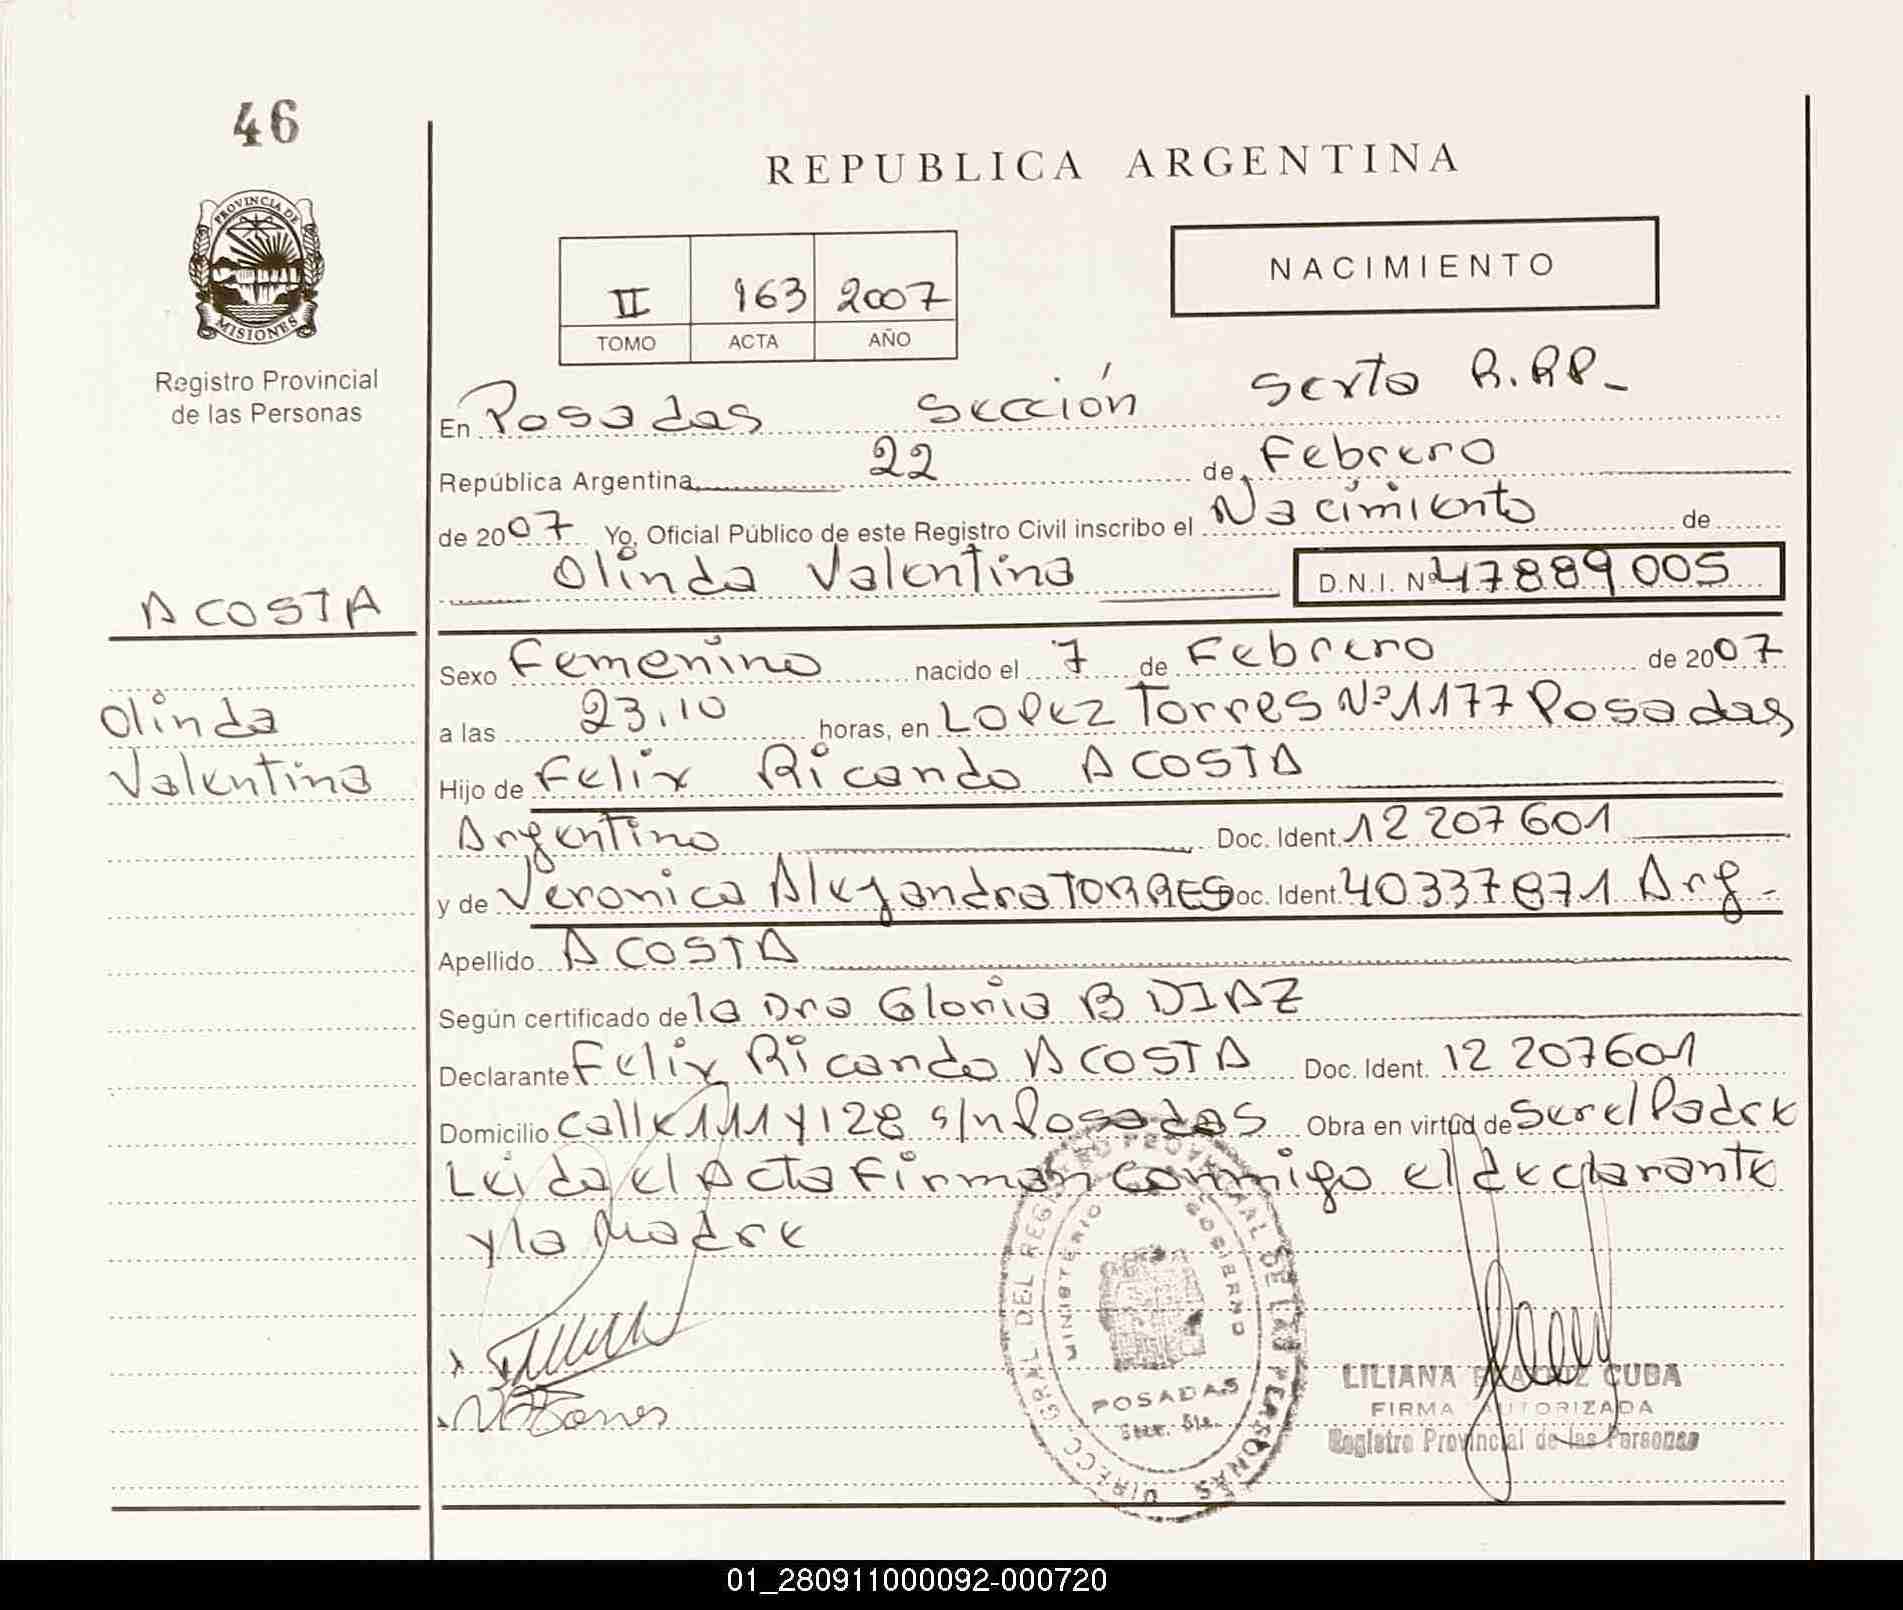 46
PROVINCIA DE
MISIONES
Registro Provincial
de las Personas
ACOSTA
Olinda
Valentina
REPUBLICA ARGENTINA
II 163 2007
TOMO ACTA AÑO
NACIMIENTO
En Posadas Sección Sexta R.RP.
República Argentina 22 de Febrero
de 2007 Yo, Oficial Público de este Registro Civil inscribo el Nacimiento de
Olinda Valentina D.N.I. Nº 47889005
Sexo Femenino nacido el 7 de Febrero de 2007
a las 23,10 horas, en Lopez Torres Nº 1177 Posadas
Hijo de Felix Ricardo ACOSTA
Argentino Doc. Ident. 12 207 601
y de Veronica Alejandra TORRES Doc. Ident. 40337871 Arg.
Apellido ACOSTA
Según certificado de la Dra Gloria B DIAZ
Declarante Felix Ricardo ACOSTA Doc. Ident. 12 207601
Domicilio calle 111 y 128 s/n Posadas Obra en virtud de ser el Padre
Leida el Acta Firman conmigo el declarante
y la Madre
DIRECC. GRAL. DEL REGISTRO PROVINCIAL DE LAS PERSONAS
MINISTERIO GOBIERNO
POSADAS
LILIANA BEATRIZ CUBA
FIRMA AUTORIZADA
Registro Provincial de las Personas
01_280911000092-000720